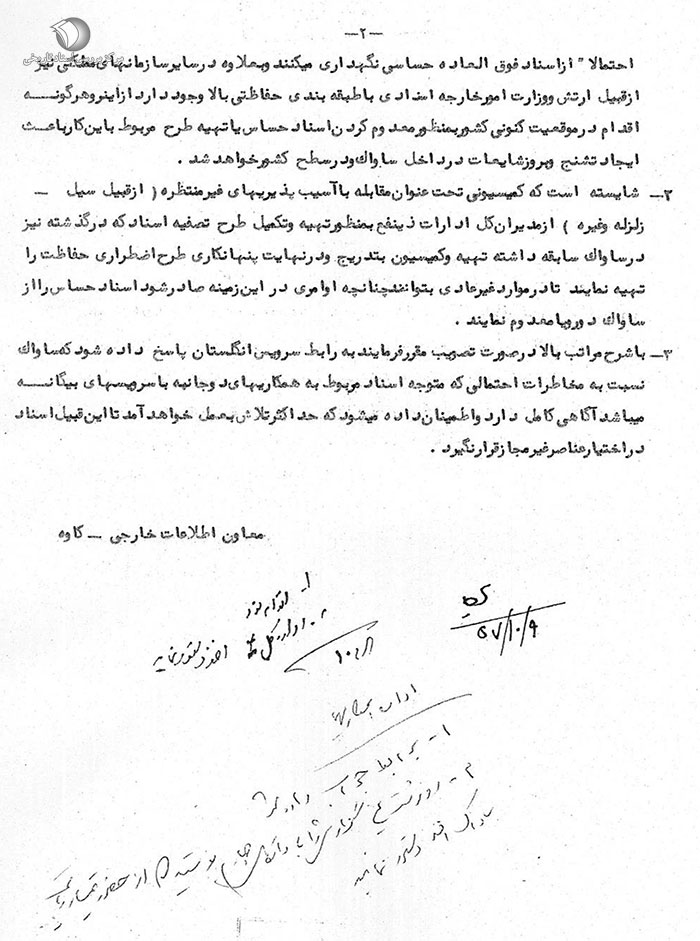 مرکز بررسی اسناد تاریخی
ـ۲ـ
احتمالا" ازاسناد فوق العاده حساسی نگهداری میکنند وبعلاوه درسایرسازمانهای مملکتی نیز
ازقبیل ارتش ووزارت امورخارجه اسنادی باطبقه بندی حفاظتی بالا وجود دارد ازاینرو هرگونه
اقدام درموقعیت کنونی کشوربمنظورمعدوم کردن اسناد حساس یاتهیه طرح مربوط باین کارباعث
ایجاد تشنج وبروزشایعات درداخل ساواک ودرسطح کشورخواهد شد .
۲ـ شایسته است که کمیسیونی تحت عنوان مقابله باآسیب پذیریهای غیرمنتظره ( ازقبیل سیل ـ
زلزله وغیره ) ازمدیران کل ادارات ذینفع بمنظورتهیه وتکمیل طرح تصفیه اسناد که درگذشته نیز
درساواک سابقه داشته تهیه وکمیسیون بتدریج ودرنهایت پنهانکاری طرح اضطراری حفاظت را
تهیه نمایند تادرموارد غیرعادی بتوانند چنانچه اوامری در این زمینه صادرشود اسناد حساس را از
ساواک دورویا معدوم نمایند .
۳ـ باشرح مراتب بالا درصورت تصویب مقررفرمایند به رابط سرویس انگلستان پاسخ داده شود که ساواک
نسبت به مخاطرات احتمالی که متوجه اسناد مربوط به همکاریهای دوجانبه باسرویسهای بیگانه
میباشد آگاهی کامل دارد واطمینان داده میشود که حداکثرتلاش بعمل خواهد آمد تا این قبیل اسناد
دراختیارعناصرغیرمجازقرارنگیرد .
معاون اطلاعات خارجی ـ کاوه
۱ـ اقدام شود
۵۷/۱۰/۹